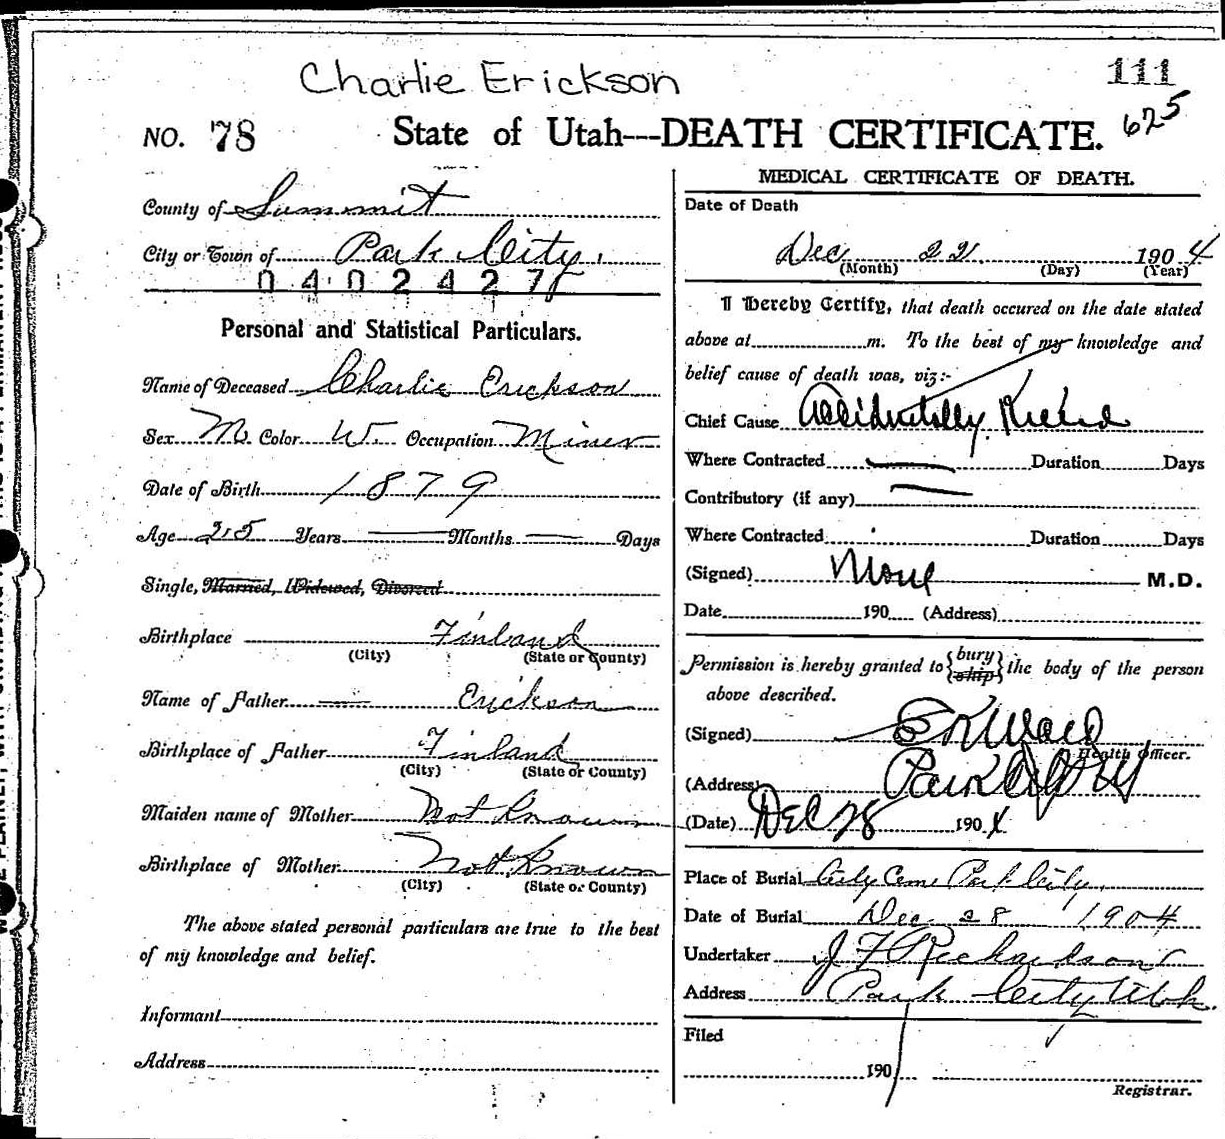 Charlie Erickson
111
625
NO. 78 State of Utah---DEATH CERTIFICATE.
County of Summit
City or Town of Park City.
0402427
Personal and Statistical Particulars.
Name of Deceased Charlie Erickson
Sex M Color W. Occupation Miner
Date of Birth 1879
Age 25 Years — Months — Days
Single, Married, Widowed, Divorced
Birthplace Finland
(City) (State or County)
Name of Father — Erickson
Birthplace of Father Finland
(City) (State or County)
Maiden name of Mother Not Known
Birthplace of Mother Not Known
(City) (State or County)
The above stated personal particulars are true to the best
of my knowledge and belief.
Informant
Address
MEDICAL CERTIFICATE OF DEATH.
Date of Death
Dec 22. 1904
(Month) (Day) (Year)
I Hereby Certify, that death occured on the date stated
above at m. To the best of my knowledge and
belief cause of death was, viz:-
Chief Cause Accidentally Killed
Where Contracted — Duration Days
Contributory (if any) —
Where Contracted Duration Days
(Signed) None M.D.
Date 190 (Address)
Permission is hereby granted to {bury
{ship} the body of the person
above described.
(Signed)
Health Officer.
(Address) Park City
(Date) Dec 28 1904
Place of Burial City Cem Park City.
Date of Burial Dec 28 1904
Undertaker J F Richardson
Address Park City Utah.
Filed
190
Registrar.